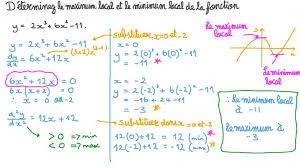 Déterminez le maximum local et le minimum local de la fonction
y = 2x³ + 6x² - 11.
y = 2x³ + 6x² - 11
dy/dx = 6x² + 12x
6x² + 12x = 0
x = 0 ou -2
d²y/dx² = 12x + 12
> 0 => min
< 0 => max
substituer x=0 et -2
x = 0
y = 2(0)³ + 6(0)² - 11
= -11 *
x = -2
y = -16 + 24 - 11
= -3 *
substituer dans x=0 et -2
12(0) + 12 = 12 (min)
12(-2) + 12 = -12 (max)
le maximum local
le minimum local
∴ le minimum local à -11
le maximum à -3